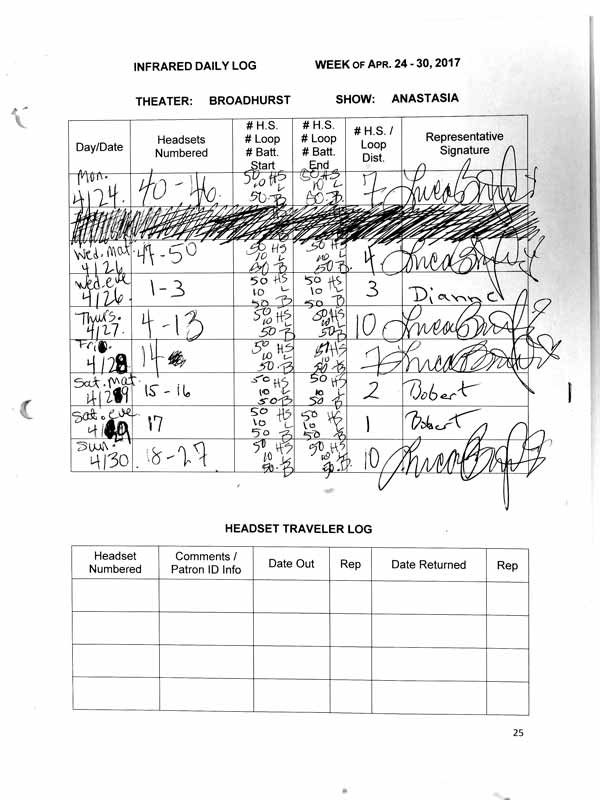 INFRARED DAILY LOG WEEK OF APR. 24 - 30, 2017
THEATER: BROADHURST SHOW: ANASTASIA
Day/Date Headsets Numbered # H.S. # Loop # Batt. Start # H.S. # Loop # Batt. End # H.S. / Loop Dist. Representative Signature
Mon. 4/24. 40-46. 50 HS 10 L 50 B 50 HS 10 L 50 B 7
Wed. mat 4/26 47-50 50 HS 10 L 50 B 50 HS 10 L 50 B. 4
Wed. eve 4/26. 1-3 50 HS 10 L 50 B 50 HS 10 L 50 B 3 Dianne
Thurs. 4/27. 4-13 50 HS 10 L 50 B 50 HS 10 L 50 B 10
Fri. 4/28 14 50 HS 10 L 50 B HS 10 L 50 B 7
Sat. mat. 4/29 15-16 50 HS 10 L 50 B 50 HS 10 L 50 B 2 Bobert
Sat. eve 4/29 17 50 HS 10 L 50 B 50 HS 10 L 50 B 1 Bobert
Sun. 4/30 18-27. 50 HS 10 L 50 B 50 HS 10 L 50 B. 10
HEADSET TRAVELER LOG
Headset Numbered Comments / Patron ID Info Date Out Rep Date Returned Rep
25